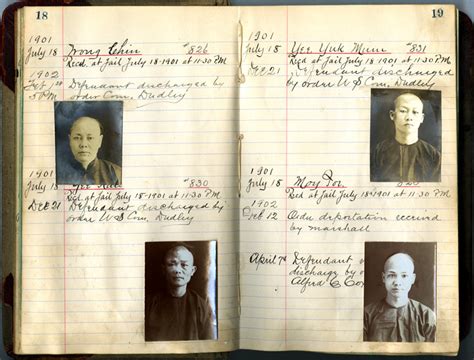 18
1901
July 18 Wong Chin #826
Recd. at Jail July-18-1901 at 11:30 P.M.
1902
Defendant discharged by
order Com. Dudley
1901
July 18 #830
Recd. at Jail July 18-1901 at 11:30 P.M.
Dec 21 Defendant discharged by
order U S Com. Dudley
19
1901
July 18 Yee Yuk Mun #831
Recd at Jail July 18-1901 at 11:30 PM
Dec 21 Defendant discharged by
order U S Com. Dudley
1901
July 18 Moy
Recd. at Jail July 18-1901 at 11:30 P.M.
1902
Dec 12 Order deportation received
by marshall
April 7th Defendant
discharge by
Alfred C Cox